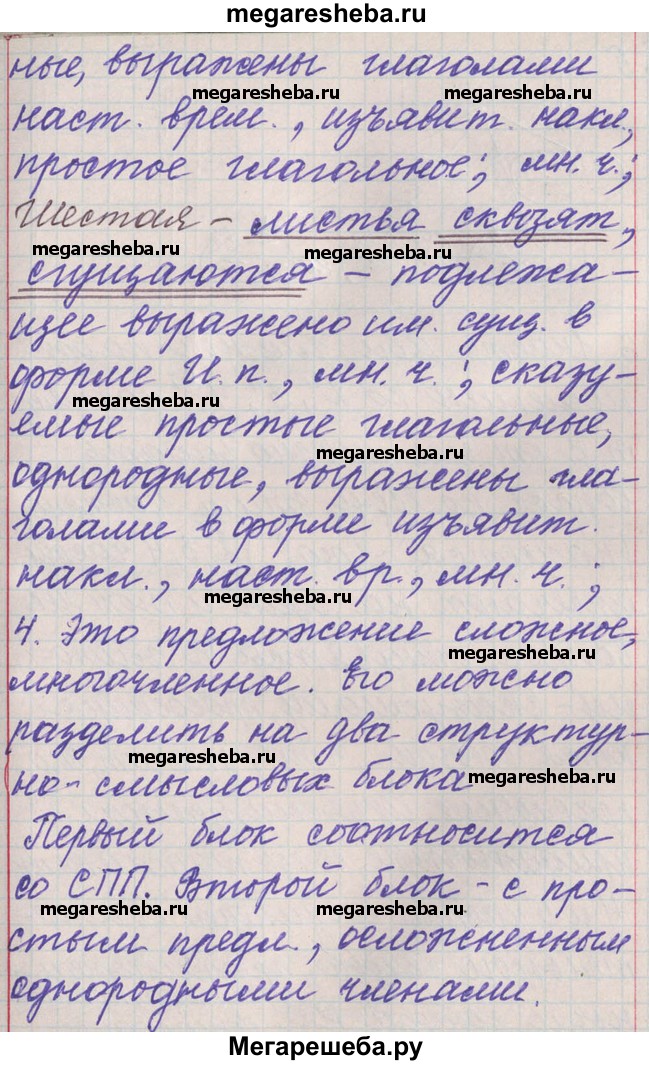 megaresheba.ru
ные, выражены глаголами
megaresheba.ru megaresheba.ru
наст. врем., изъявит. накл.,
простое глагольное; мн. ч.;
megaresheba.ru
Шестая - листья сквозят,
megaresheba.ru megaresheba.ru
сгущаются - подлежа-
щее выражено им. сущ. в
форме И. п., мн. ч.; сказу-
megaresheba.ru
емые простые глагольные,
megaresheba.ru
однородные, выражены гла-
голами в форме изъявит.
накл., наст. вр., мн. ч.;
megaresheba.ru
4. Это предложение сложное,
megaresheba.ru
многочленное. Его можно
разделить на два структур-
megaresheba.ru
но-смысловых блока
megaresheba.ru
Первый блок соотносится
со СПП. Второй блок - с про-
megaresheba.ru megaresheba.ru
стым предл., осложненным
однородными членами.
Мегарешеба.ру